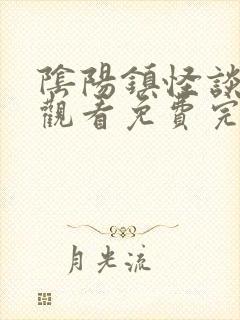 陰陽鎮怪談
觀看免費完
月光流